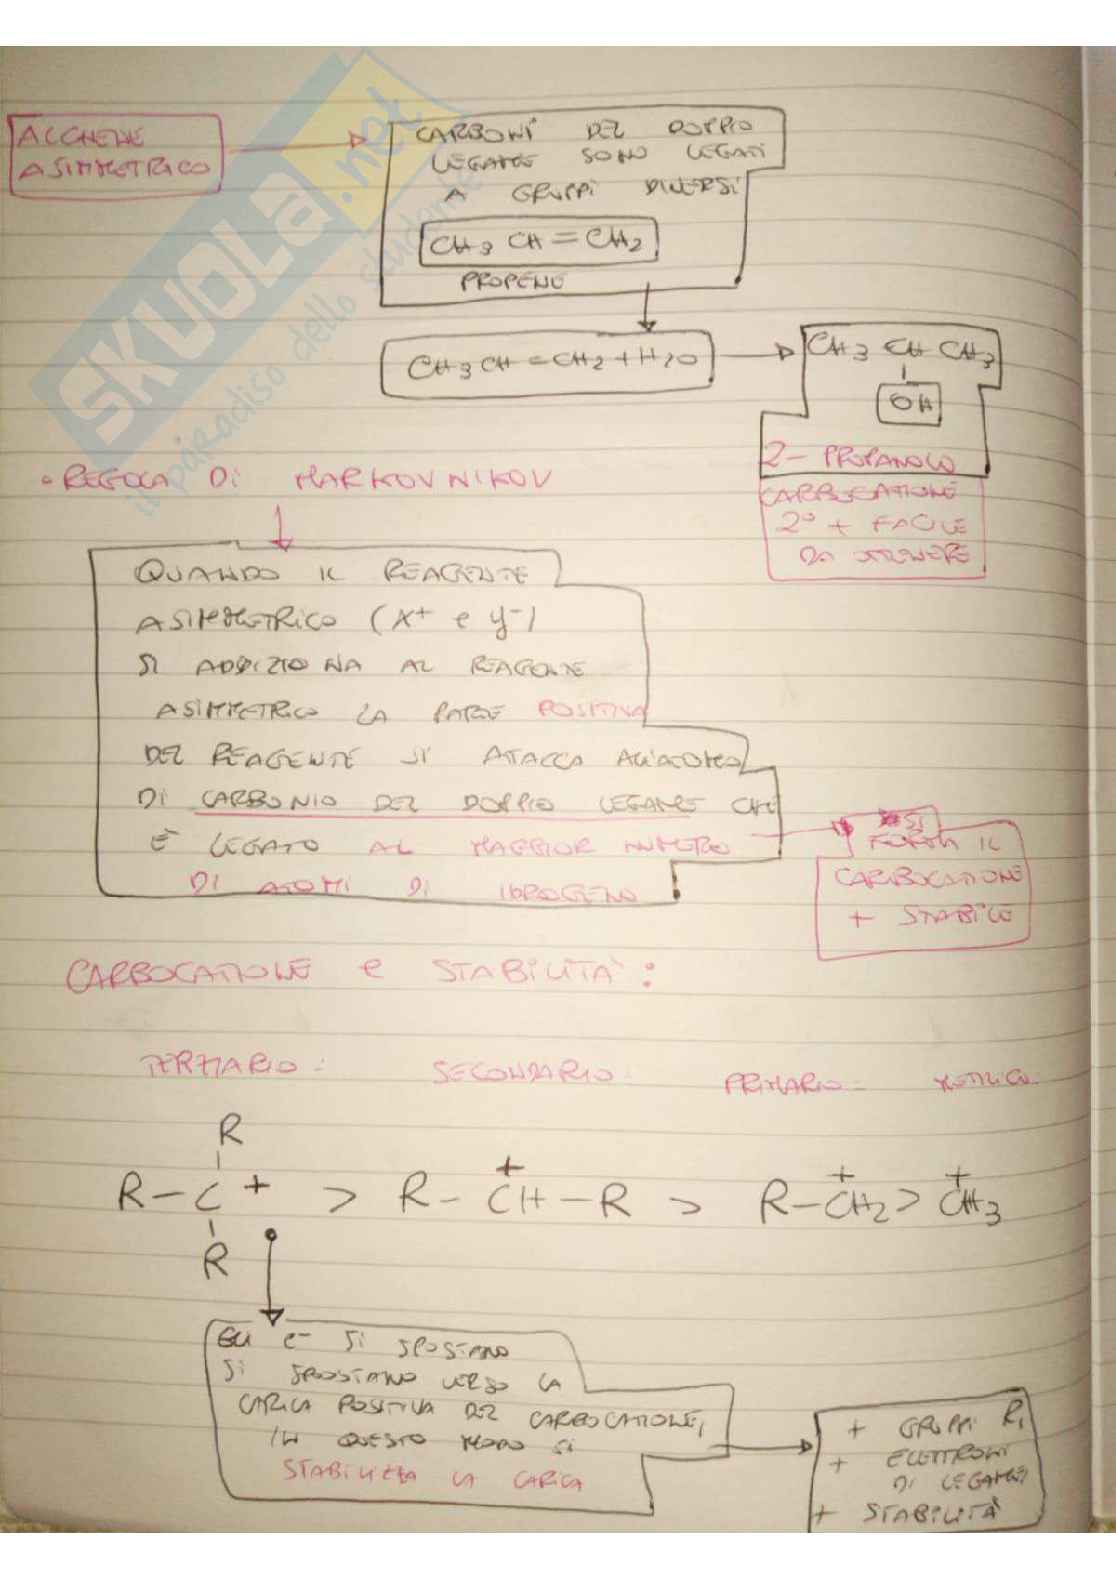 ALCHENE
ASIMMETRICO
CARBONI DEL DOPPIO
LEGAME SONO LEGATI
A GRUPPI DIVERSI
CH3 CH=CH2
PROPENE
CH3 CH=CH2+H2O
CH3 CH CH3
OH
2-PROPANOLO
CARBOCATIONE
2° + FACILE
DA OTTENERE
• REGOLA DI MARKOVNIKOV
QUANDO IL REAGENTE
ASIMMETRICO (X+ e y-)
SI ADDIZIONA AL REAGENTE
ASIMMETRICO LA PARTE POSITIVA
DEL REAGENTE SI ATTACCA ALL'ATOMO
DI CARBONIO DEL DOPPIO LEGAME CHE
È LEGATO AL MAGGIOR NUMERO
DI ATOMI DI IDROGENO
SI
FORMA IL
CARBOCATIONE
+ STABILE
CARBOCATIONE e STABILITÀ:
TERZIARIO: SECONDARIO: PRIMARIO: METILICO
R
R-C + > R-CH-R > R-CH2> CH3
+ + +
R
GLI e- SI SPOSTANO
SI SPOSTANO VERSO LA
CARICA POSITIVA DEL CARBOCATIONE,
IN QUESTO MODO SI
STABILIZZA LA CARICA
+ GRUPPI R,
+ ELETTRONI
DI LEGAME,
+ STABILITÀ
SKUOLA.net
il paradiso dello studente